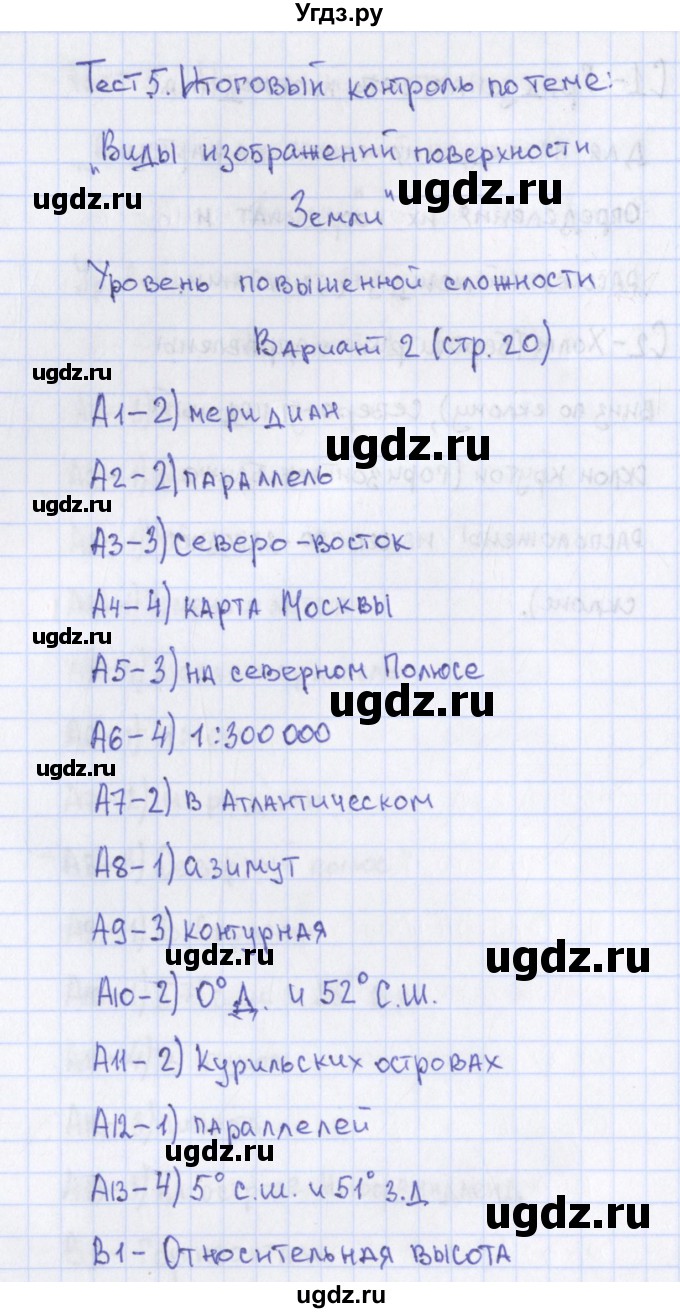 Угдз.ру
Тест 5. Итоговый контроль по теме:
"Виды изображений поверхности
ugdz.ru
ugdz.ru
Земли"
Уровень повышенной сложности
Вариант 2 (стр. 20)
ugdz.ru
А1-2) меридиан
ugdz.ru
А2-2) параллель
ugdz.ru
А3-3) северо-восток
А4-4) карта Москвы
ugdz.ru
А5-3) на северном Полюсе
ugdz.ru
А6-4) 1:300 000
ugdz.ru
А7-2) в Атлантическом
А8-1) азимут
А9-3) контурная
ugdz.ru
ugdz.ru
А10-2) 0° д. и 52° с.ш.
А11-2) Курильских островах
А12-1) параллелей
ugdz.ru
А13-4) 5° с.ш. и 51° з.д
ugdz.ru
В1- Относительная высота
ugdz.ru